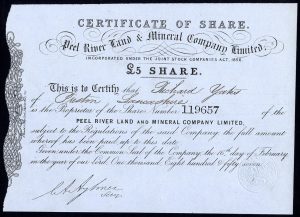 CERTIFICATE OF SHARE.
Peel River Land & Mineral Company Limited,
INCORPORATED UNDER THE JOINT STOCK COMPANIES ACT, 1856.
£5 SHARE.
This is to Certify that Richard Yates
of Preston Lancashire
is the Proprietor of the Share Number 119657 of the
PEEL RIVER LAND AND MINERAL COMPANY LIMITED,
subject to the Regulations of the said Company the full amount
whereof has been paid up to this date
Given under the Common Seal of the Company the 16th day of February
in the year of our lord One thousand Eight hundred & fifty seven
Secy.